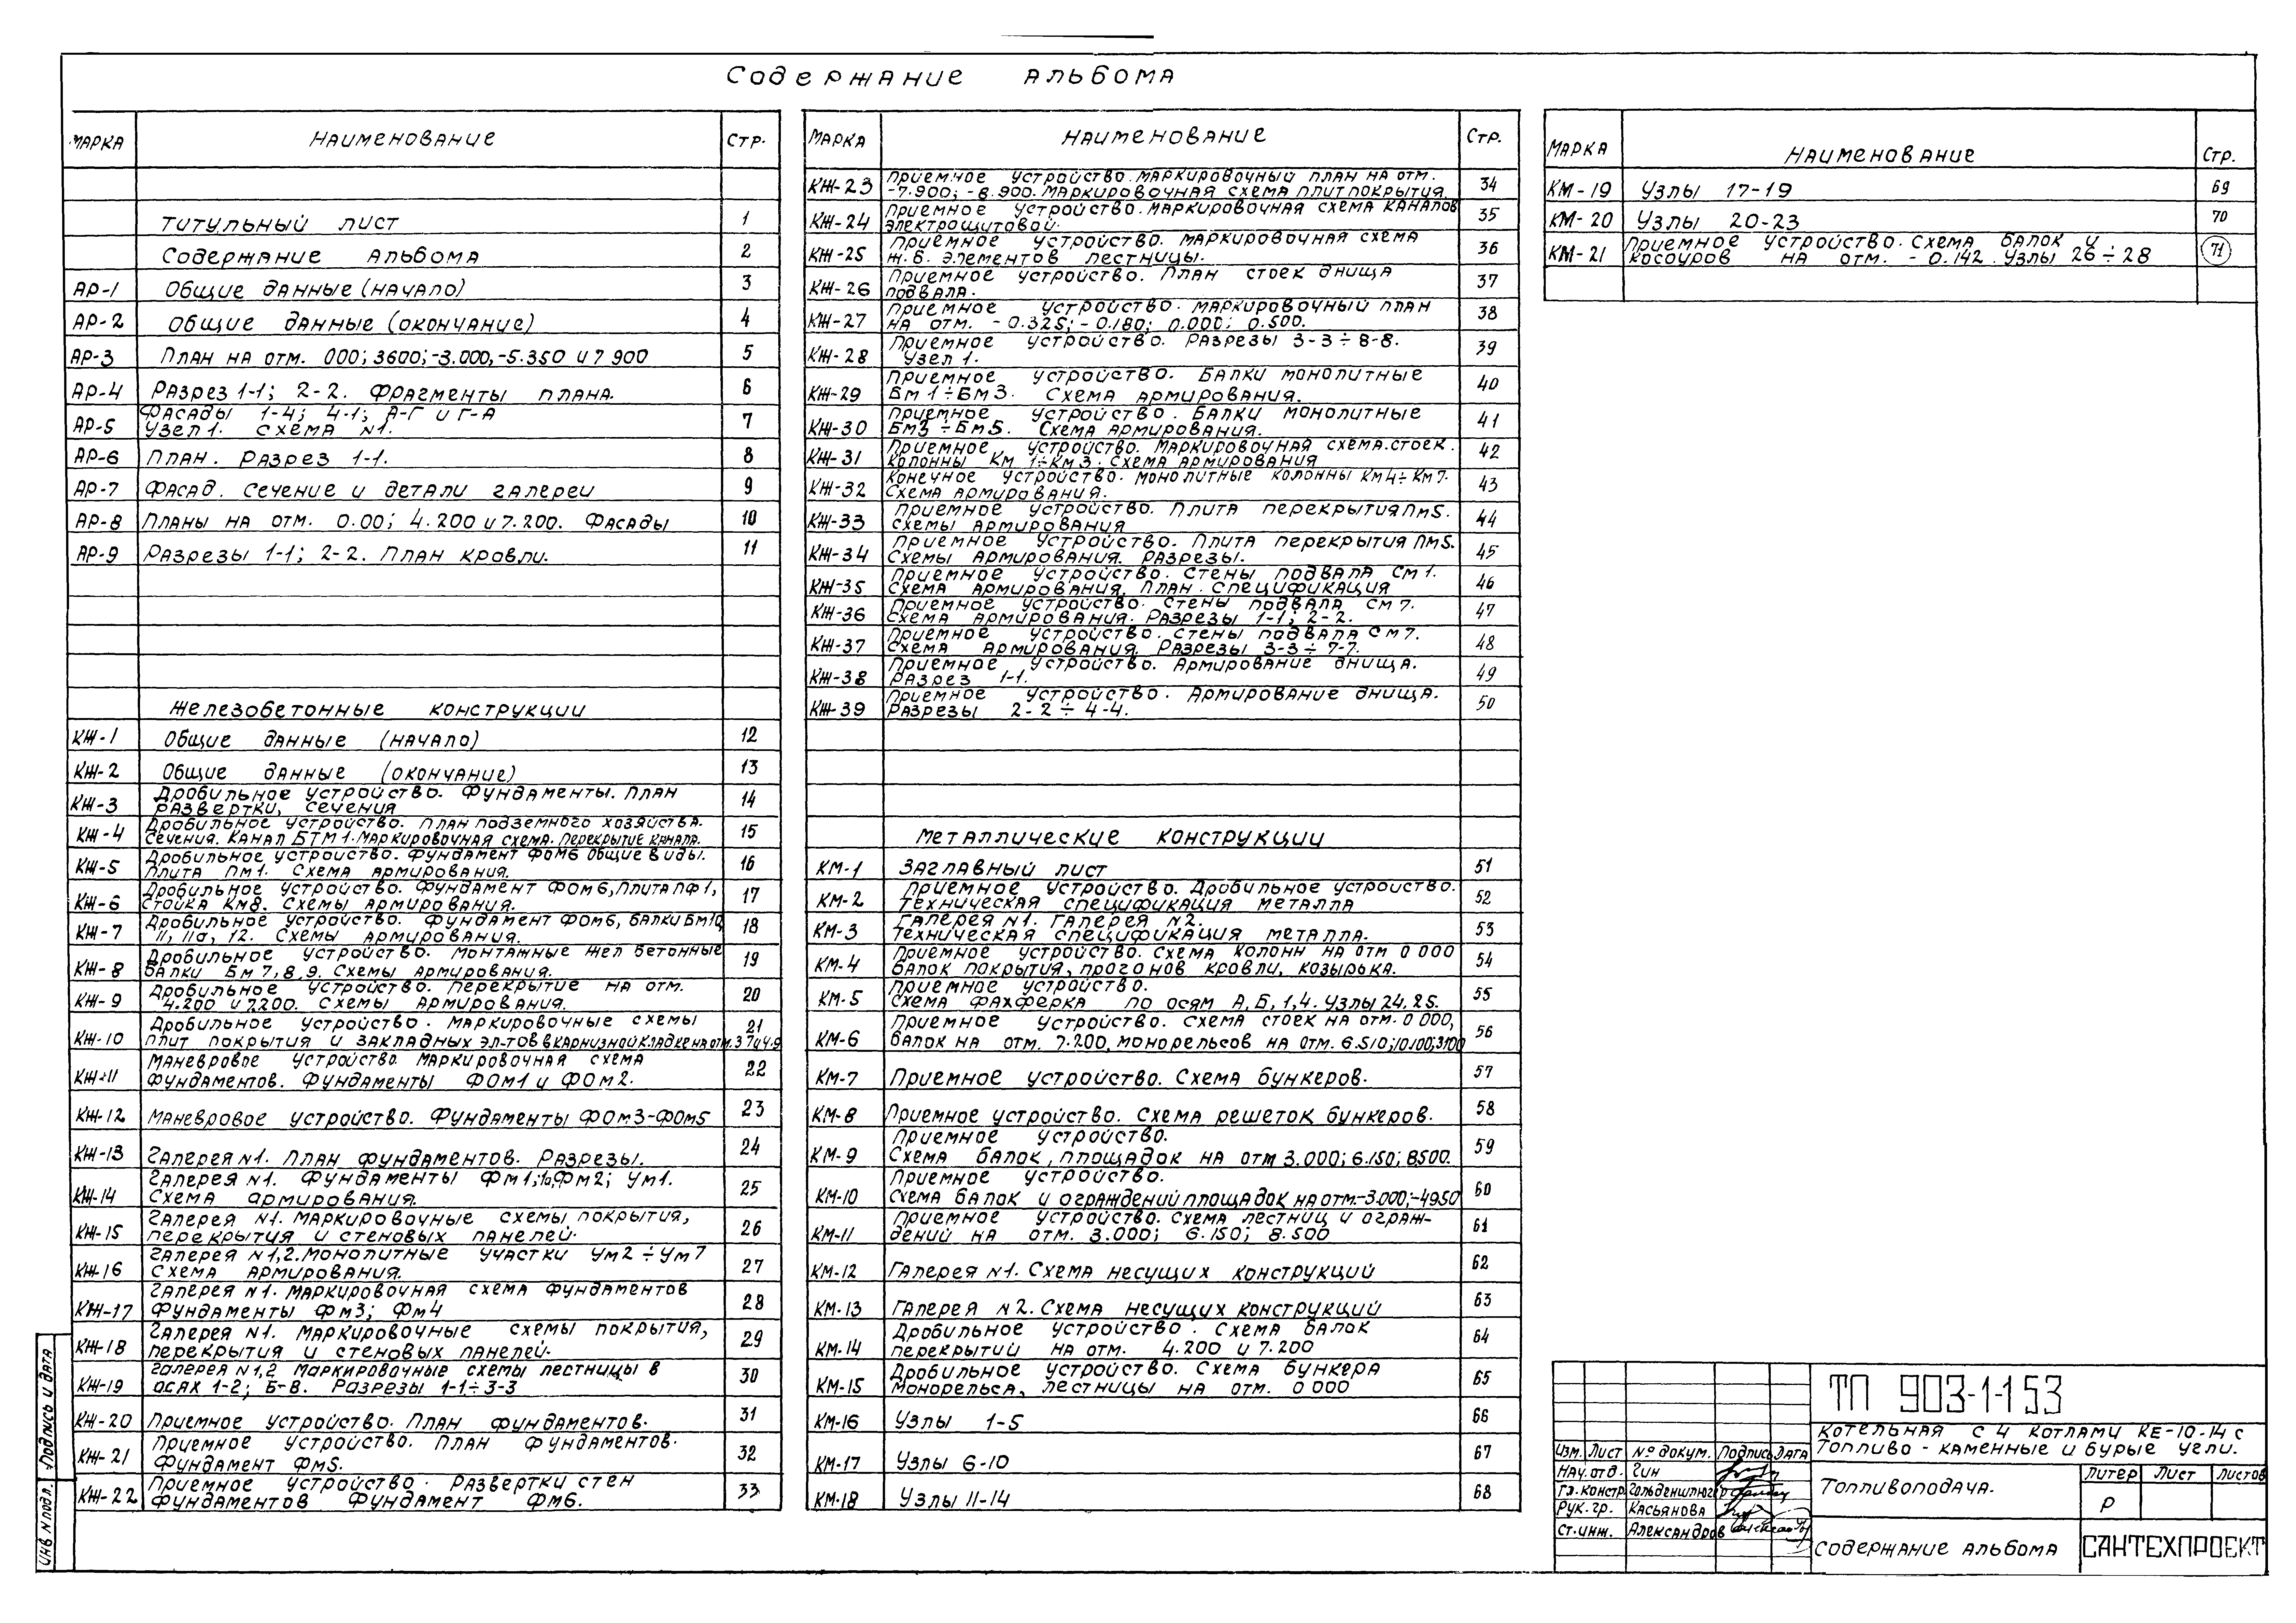 Содержание альбома
Марка Наименование Стр.
Титульный лист 1
Содержание альбома 2
АР-1 Общие данные (начало) 3
АР-2 Общие данные (окончание) 4
АР-3 План на отм. 000; 3600; -3.000, -5.350 и 7 900 5
АР-4 Разрез 1-1; 2-2. Фрагменты плана. 6
АР-5 Фасады 1-4; 4-1; А-Г и Г-А
Узел 1. Схема N1. 7
АР-6 План. Разрез 1-1. 8
АР-7 Фасад. Сечение и детали галереи 9
АР-8 Планы на отм. 0.00; 4.200 и 7.200. Фасады 10
АР-9 Разрезы 1-1; 2-2. План кровли. 11
Железобетонные конструкции
КЖ-1 Общие данные (начало) 12
КЖ-2 Общие данные (окончание) 13
КЖ-3 Дробильное устройство. Фундаменты. План
развертки, сечения 14
КЖ-4 Дробильное устройство. План подземного хозяйства.
Сечения. Канал БТМ1. Маркировочная схема. Перекрытие канала. 15
КЖ-5 Дробильное устройство. Фундамент ФОм6 Общие виды.
Плита Пм1. Схема армирования. 16
КЖ-6 Дробильное устройство. Фундамент ФОм6, плита ПФ1,
стойка Км8. Схемы армирования. 17
КЖ-7 Дробильное устройство. Фундамент ФОм6, балки Бм10,
11, 11а, 12. Схемы армирования. 18
КЖ-8 Дробильное устройство. Монтажные жел бетонные
балки Бм 7,8,9. Схемы армирования. 19
КЖ-9 Дробильное устройство. Перекрытие на отм.
4.200 и 7.200. Схемы армирования. 20
КЖ-10 Дробильное устройство. Маркировочные схемы 21
плит покрытия и закладных эл-тов в карнизной кладке на отм.
КЖ-11 Маневровое устройство маркировочная схема
фундаментов. Фундаменты ФОм1 и ФОм2. 22
КЖ-12 Маневровое устройство. Фундаменты ФОм3-ФОм5 23
КЖ-13 Галерея N1. План фундаментов. Разрезы. 24
КЖ-14 Галерея N1. Фундаменты Фм1,1а,Фм2; Ум1.
Схема армирования. 25
КЖ-15 Галерея N1. Маркировочные схемы покрытия,
перекрытия и стеновых панелей. 26
КЖ-16 Галерея N1,2. Монолитные участки Ум2÷Ум7
Схема армирования. 27
КЖ-17 Галерея N1. Маркировочная схема фундаментов
Фундаменты Фм3; Фм4 28
КЖ-18 Галерея N1. Маркировочные схемы покрытия,
перекрытия и стеновых панелей. 29
КЖ-19 Галерея N1,2 Маркировочные схемы лестницы в
осях 1-2; Б-В. Разрезы 1-1÷3-3 30
КЖ-20 Приемное устройство. План фундаментов. 31
КЖ-21 Приемное устройство. План фундаментов.
Фундамент Фм5. 32
КЖ-22 Приемное устройство. Развертки стен
фундаментов Фундамент Фм6. 33
Марка Наименование Стр.
КЖ-23 Приемное устройство. Маркировочный план на отм.
-7.900; -8.900. Маркировочная схема плит покрытия. 34
КЖ-24 Приемное устройство. Маркировочная схема каналов
электрощитовой. 35
КЖ-25 Приемное устройство. Маркировочная схема
ж.б. элементов лестницы. 36
КЖ-26 Приемное устройство. План стоек днища
подвала. 37
КЖ-27 Приемное устройство. Маркировочный план
на отм. -0.325; -0.180; 0.000; 0.500. 38
КЖ-28 Приемное устройство. Разрезы 3-3÷8-8.
Узел 1. 39
КЖ-29 Приемное устройство. Балки монолитные
Бм1÷Бм3. Схема армирования. 40
КЖ-30 Приемное устройство. Балки монолитные
Бм3÷Бм5. Схема армирования. 41
КЖ-31 Приемное устройство. Маркировочная схема стоек.
Колонны Км 1÷Км3. Схема армирования 42
КЖ-32 Конечное устройство. Монолитные колонны Км4÷Км7.
Схема армирования. 43
КЖ-33 Приемное устройство. Плита перекрытия Пм5.
Схемы армирования 44
КЖ-34 Приемное устройство. Плита перекрытия Пм5.
Схемы армирования. Разрезы. 45
КЖ-35 Приемное устройство. Стены подвала См1.
Схема армирования. План. Спецификация 46
КЖ-36 Приемное устройство. Стены подвала См7.
Схема армирования. Разрезы 1-1; 2-2. 47
КЖ-37 Приемное устройство. Стены подвала См7.
Схема армирования. Разрезы 3-3÷7-7. 48
КЖ-38 Приемное устройство. Армирование днища.
Разрез 1-1. 49
КЖ-39 Приемное устройство. Армирование днища.
Разрезы 2-2÷4-4. 50
Металлические конструкции
КМ-1 Заглавный лист 51
КМ-2 Приемное устройство. Дробильное устройство.
Техническая спецификация металла 52
КМ-3 Галерея N1. Галерея N2.
Техническая спецификация металла. 53
КМ-4 Приемное устройство. Схема колонн на отм 0 000
балок покрытия, прогонов кровли, козырька. 54
КМ-5 Приемное устройство.
Схема фахферка по осям А,Б,1,4. Узлы 24,25. 55
КМ-6 Приемное устройство. Схема стоек на отм. 0 000,
балок на отм. 7.200, монорельсов на отм. 6.510; 56
КМ-7 Приемное устройство. Схема бункеров. 57
КМ-8 Приемное устройство. Схема решеток бункеров. 58
КМ-9 Приемное устройство.
Схема балок, площадок на отм 3.000; 6.150; 8.500. 59
КМ-10 Приемное устройство.
Схема балок и ограждений площадок на отм.-3.000;-4950 60
КМ-11 Приемное устройство. Схема лестниц и ограж-
дений на отм. 3.000; 6.150; 8.500 61
КМ-12 Галерея N1. Схема несущих конструкций 62
КМ-13 Галерея N2. Схема несущих конструкций 63
КМ-14 Дробильное устройство. Схема балок
перекрытий на отм. 4.200 и 7.200 64
КМ-15 Дробильное устройство. Схема бункера
монорельса, лестницы на отм. 0 000 65
КМ-16 Узлы 1-5 66
КМ-17 Узлы 6-10 67
КМ-18 Узлы 11-14 68
Марка Наименование Стр.
КМ-19 Узлы 17-19 69
КМ-20 Узлы 20-23 70
КМ-21 Приемное устройство. Схема балок и
косоуров на отм. -0.142. Узлы 26÷28 71
ТП 903-1-153
Котельная с 4 котлами КЕ-10-14с
Топливо - каменные и бурые угли.
Изм. Лист № докум. Подпись Дата
Нач.отд. Гин
Гл.констр. Гольденштюгер
Рук.гр. Касьянова
Ст.инж. Александров
Топливоподача.
Литер Лист Листов
Р
Содержание альбома
САНТЕХПРОЕКТ
Подпись и дата
Инв N подл.